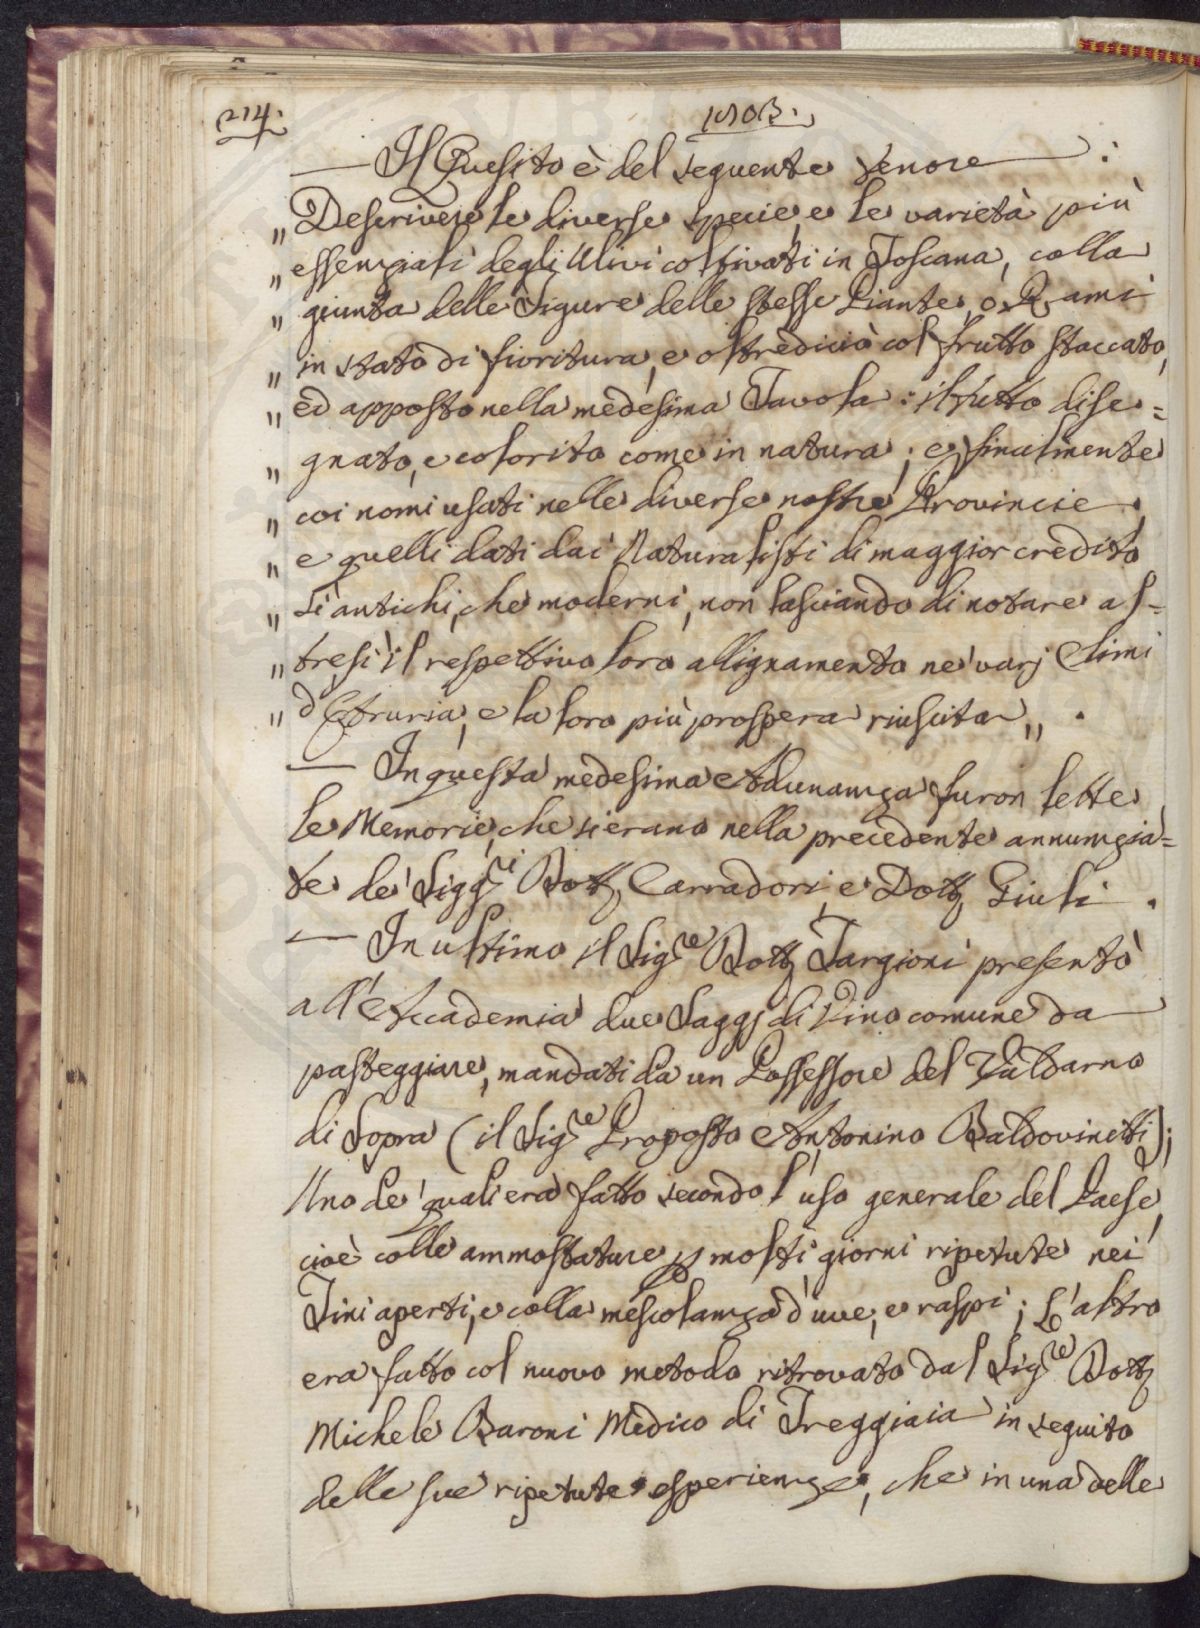 214.
1803.
— Il Quesito è del seguente tenore :
„ Descrivere le diverse specie, e le varietà più
„ essenziali degli Ulivi coltivati in Toscana, colla
„ giunta delle Figure delle stesse Piante, o Rami
„ in stato di fioritura, e oltrediciò col frutto staccato,
„ ed apposto nella medesima Tavola: il tutto dise=
„ gnato, e colorito come in natura; e finalmente
„ coi nomi usati nelle diverse nostre Provincie,
„ e quelli dati dai Naturalisti di maggior credito
„ sì antichi, che moderni, non lasciando di notare al=
„ tresì il respettivo loro allignamento ne' varj Climi
„ d'Etruria, e la loro più prospera riuscita „ .
— In questa medesima Adunanza furon lette
le Memorie, che si erano nella precedente annunzia=
te de' Sigg.ri Dott. Carradori, e Dott. Giuli .
— In ultimo il Sig.re Dott. Targioni presentò
all'Accademia due Saggj di Vino comune da
pasteggiare, mandati da un Possessore del Valdarno
di Sopra (il Sig.re Proposto Antonino Baldovinetti);
Uno de' quali era fatto secondo l'uso generale del Paese,
cioè colle ammostature p molti giorni ripetute nei
Tini aperti, e colla mescolanza d'uve, e raspi; L'altro
era fatto col nuovo metodo ritrovato dal Sig.re Dott.
Michele Baroni Medico di Treggiaia in seguito
delle sue ripetute esperienze, che in una delle